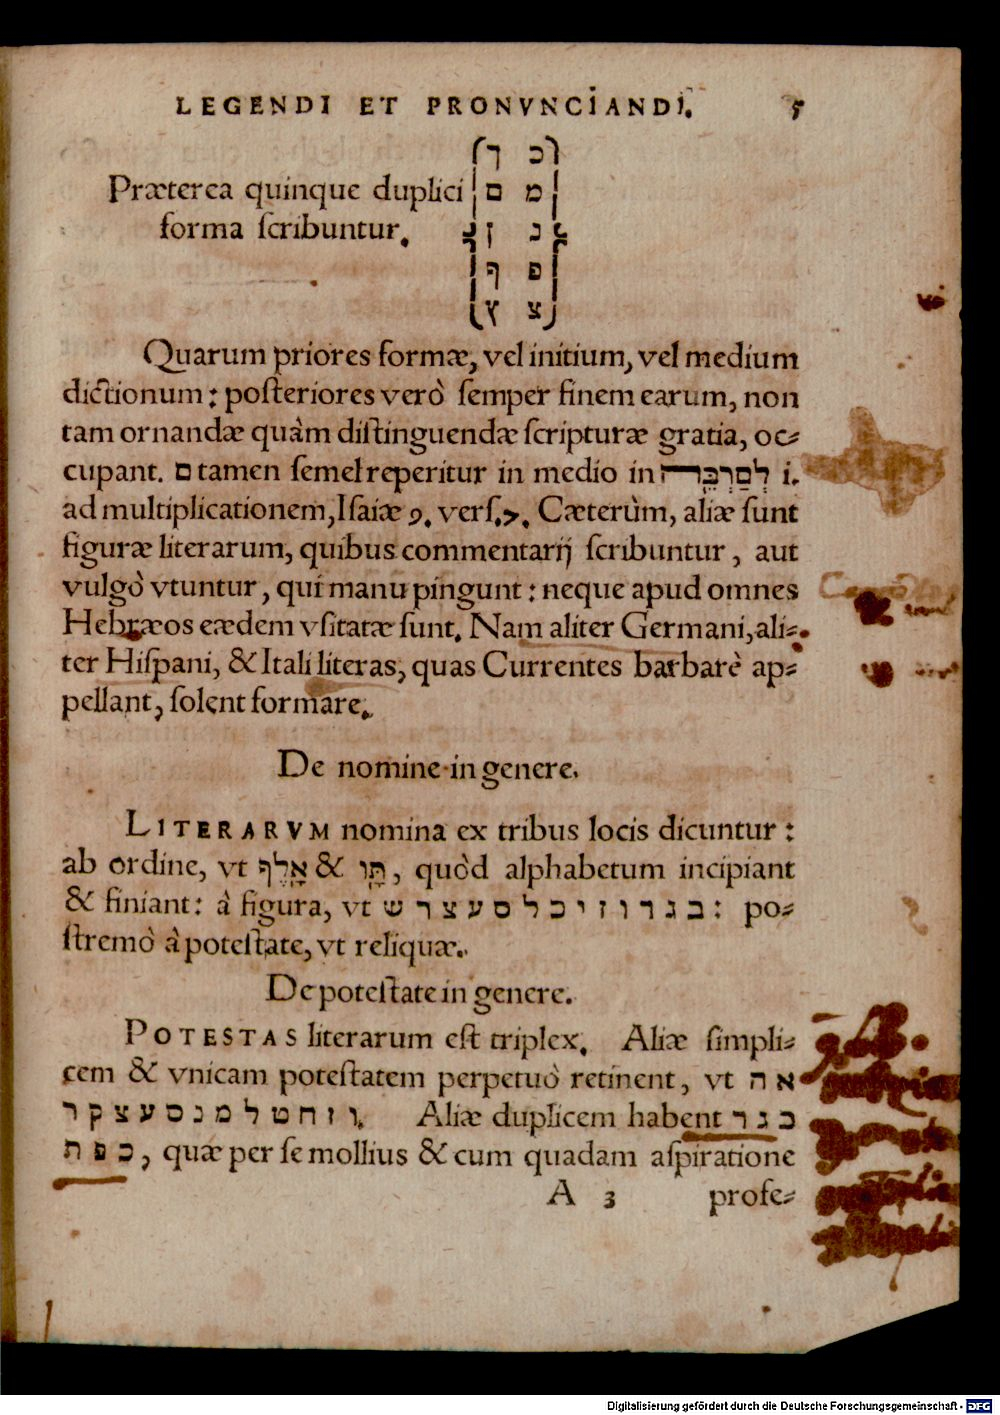 LEGENDI ET PRONVNCIANDI. 5
כ ך
Præterea quinque duplici מ ם
forma ſcribuntur. נ ן
פ ף
צ ץ
Quarum priores formæ, vel initium, vel medium
dictionum: poſteriores verò ſemper finem earum, non
tam ornandæ quàm diſtinguendæ ſcripturæ gratia, oc-
cupant. ם tamen ſemel reperitur in medio in לְםַרְבֵּה i.
ad multiplicationem, Iſaiæ 9. verſ. 7. Cæterùm, aliæ ſunt
figuræ literarum, quibus commentarij ſcribuntur, aut
vulgò vtuntur, qui manu pingunt: neque apud omnes
Hebræos eædem vſitatæ ſunt. Nam aliter Germani, ali-
ter Hiſpani, & Itali literas, quas Currentes barbarè ap-
pellant, ſolent formare.
De nomine in genere.
LITERARVM nomina ex tribus locis dicuntur:
ab ordine, vt אָלֶף & תָּו, quòd alphabetum incipiant
& finiant: à figura, vt ב ג ד ו ז י כ ל ס ע צ ר ש: po-
ſtremò à poteſtate, vt reliquæ.
De poteſtate in genere.
POTESTAS literarum eſt triplex. Aliæ ſimpli-
cem & vnicam poteſtatem perpetuò retinent, vt א ה
ו ז ח ט ל מ נ ס ע צ ק ר. Aliæ duplicem habent ב ג ד
כ פ ת, quæ per ſe mollius & cum quadam aſpiratione
A 3 profe-
Digitalisierung gefördert durch die Deutsche Forschungsgemeinschaft - DFG